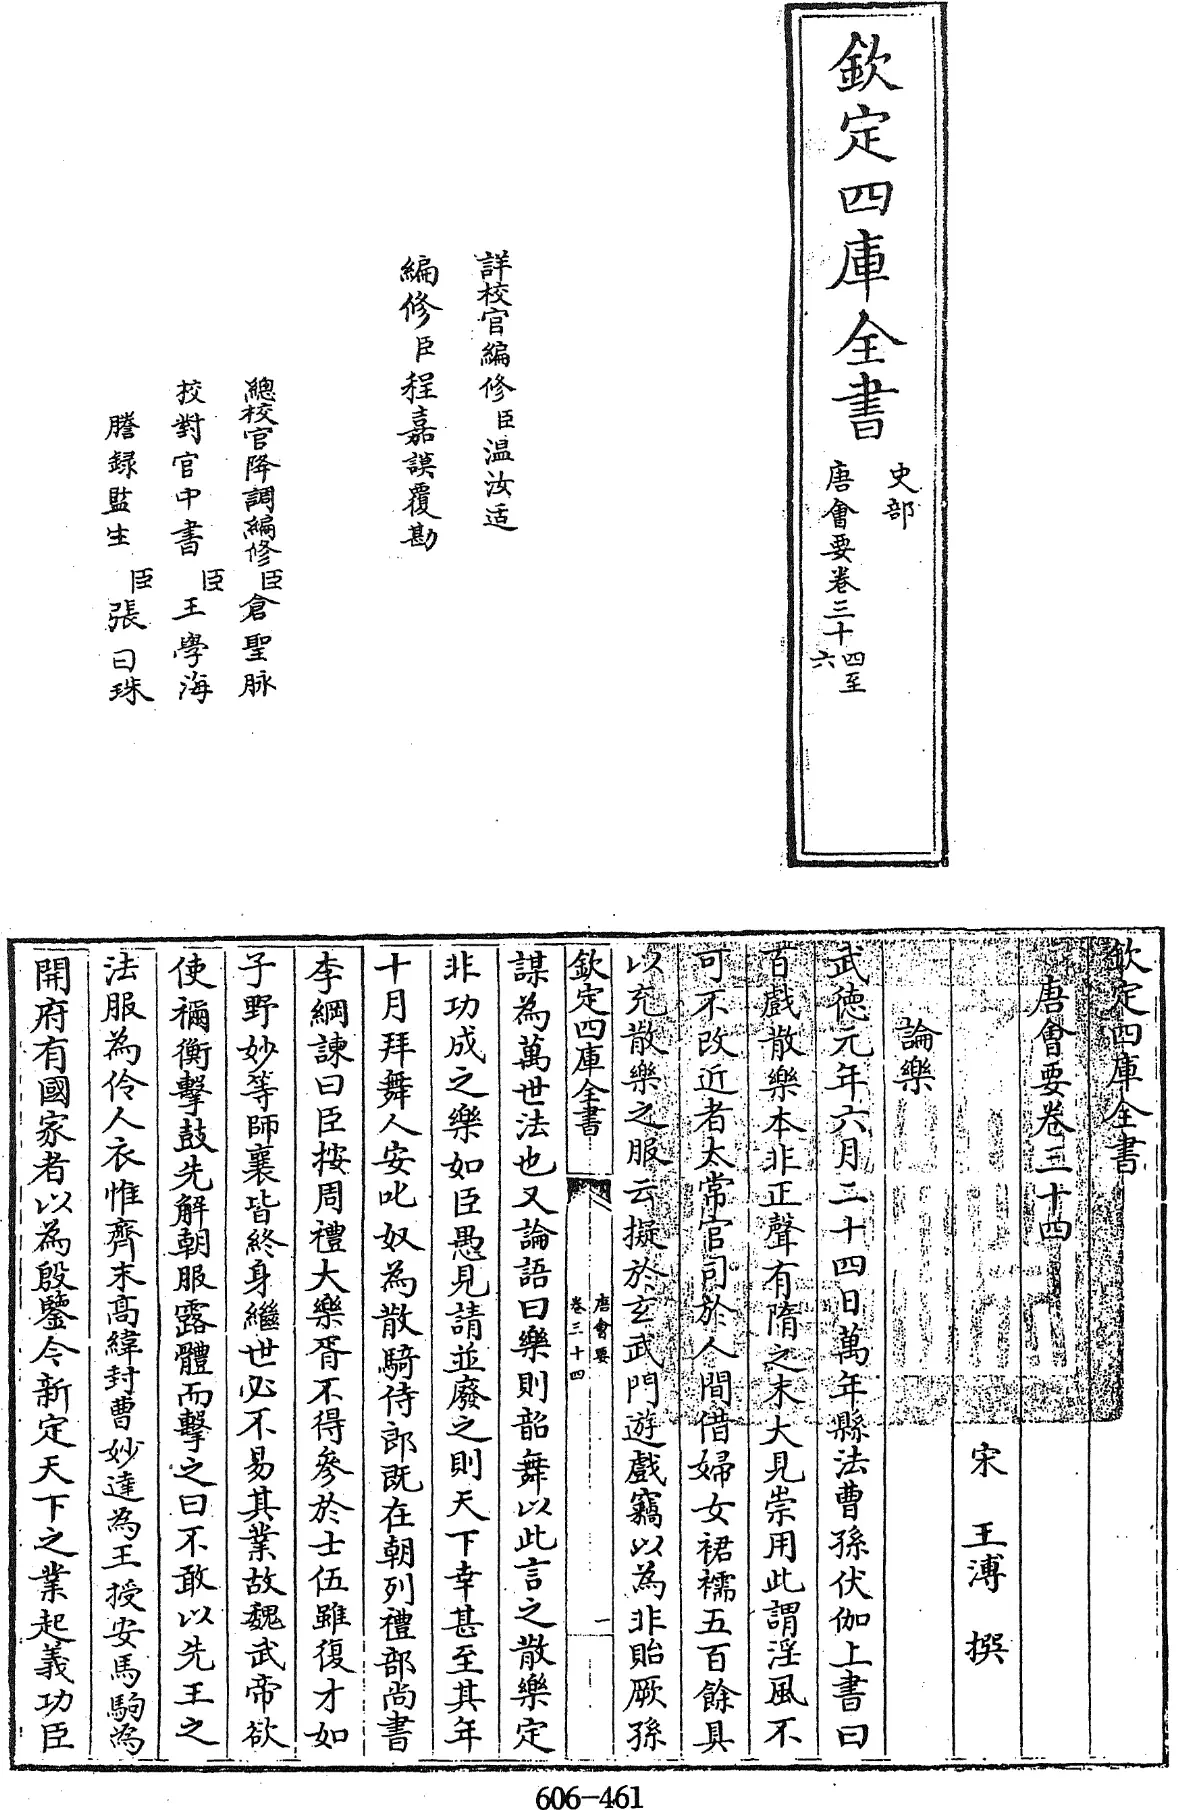 欽定四庫全書
史部
唐會要卷三十四至
六
詳校官編修臣温汝适
編修臣程嘉謨覆勘
總校官降調編修臣倉聖脉
校對官中書臣王學海
謄録監生臣張曰珠
欽定四庫全書
唐會要卷三十四
宋 王溥 撰
論樂
武德元年六月二十四日萬年縣法曹孫伏伽上書曰
百戲散樂本非正聲有隋之末大見崇用此謂淫風不
可不改近者太常官司於人間借婦女裙襦五百餘具
以充散樂之服云擬於玄武門遊戲竊以為非貽厥孫
欽定四庫全書
唐會要
卷三十四
一
謀為萬世法也又論語曰樂則韶舞以此言之散樂定
非功成之樂如臣愚見請並廢之則天下幸甚至其年
十月拜舞人安叱奴為散騎侍郎既在朝列禮部尚書
李綱諫曰臣按周禮大樂胥不得參於士伍雖復才如
子野妙等師襄皆終身繼世必不易其業故魏武帝欲
使禰衡擊鼓先解朝服露體而擊之曰不敢以先王之
法服為伶人衣惟齊末高緯封曹妙達為王授安馬駒為
開府有國家者以為殷鑒今新定天下之業起義功臣
606-461